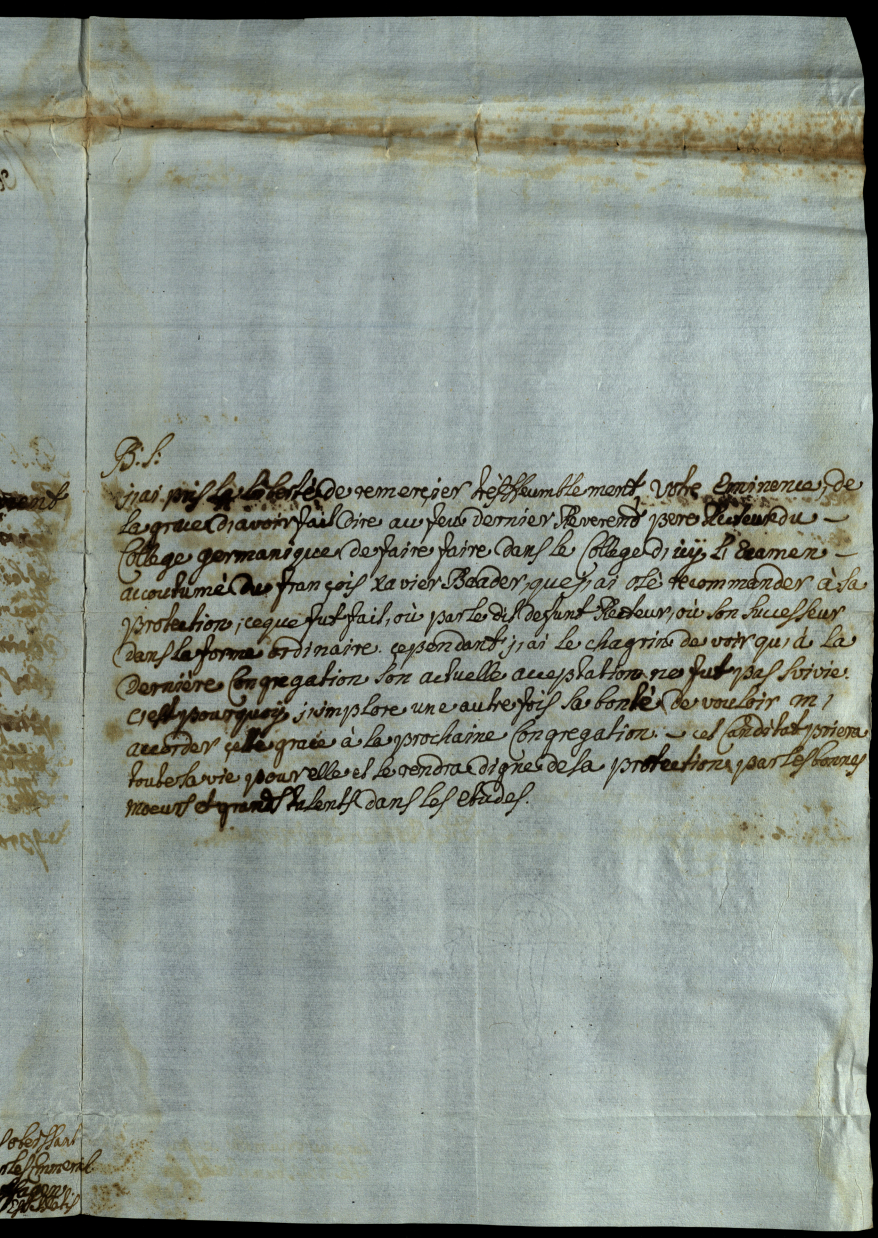 P: S:
j'ai pris la liberté de remerçier trésheumblement, Votre Eminence, de
la grace d'avoir fait dire au feu dernier Reverend pere Recteur du —
College germanique de faire faire dans le College d'icÿ l'Examen —
accoutumé du françois Xavier Baader, que j'ai osé recommander à sa
protection, ce que fut fait, où par le dit defunt Recteur, où son successeur
dans la forme ordinaire. çependant j'ai le chagrin de voir qu'à la
dernière Congregation son actuelle acceptation ne fut pas suivie.
c'est pourquoÿ j'implore une autre fois sa bonté de vouloir m'
accorder çette grace à la prochaine Congregation. — cet Canditat priera
toute sa vie pour elle et se rendra digne de sa protection par ses bonnes
moeurs et grands talents dans les etudes.